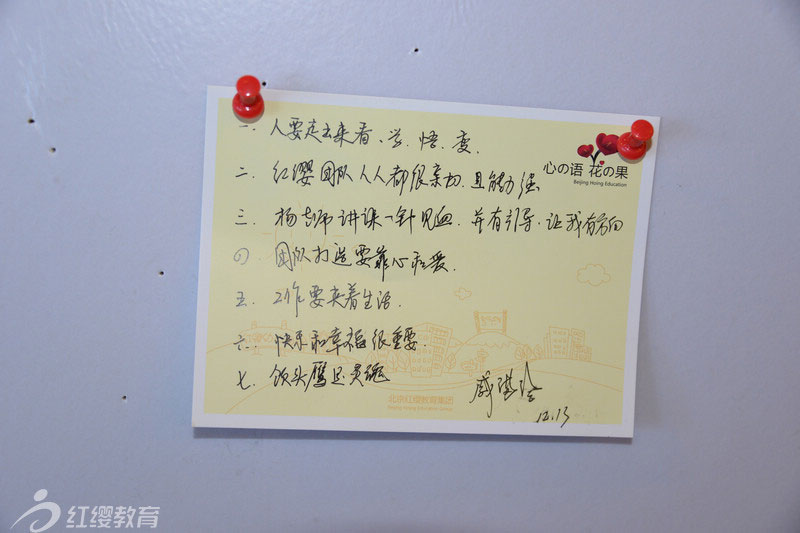 一. 人要走出来看、学、悟、变.
心の语 花の果
Beijing Hoing Education
二. 红缨团队人人都很亲切,且能力强
三. 杨老师讲课一针见血,并有引导,让我有方向
四. 团队打造要靠心和爱.
五. 工作要夹着生活.
六. 快乐和幸福很重要.
七. 领头鹰是灵魂
12.13
北京红缨教育集团
Beijing Hoing Education Group
红缨教育